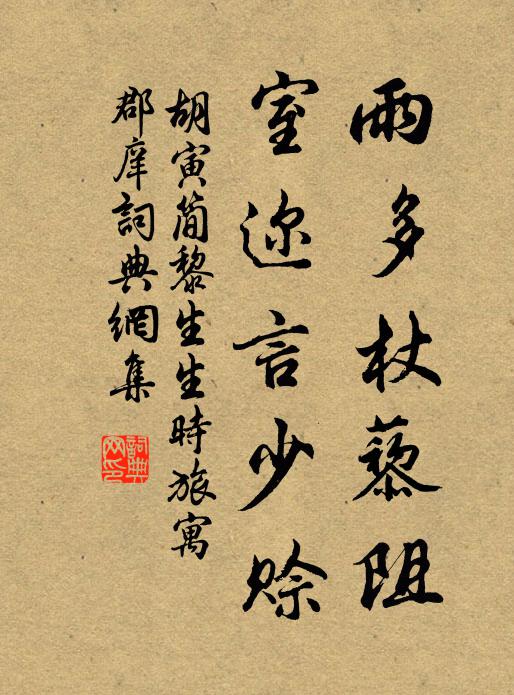 雨多杖藜阻
室邇言少賒
胡寅簡黎生生時旅寓
郡庠詞典網集
詞典網印